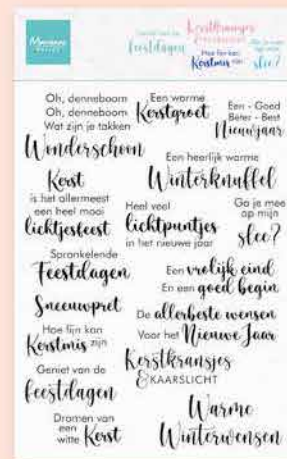 Marianne
DESIGN
Geniet van de
feestdagen
Kerstkransjes
&KAARSLICHT
Hoe fijn kan
Kerstmis zijn
Ga je mee
op mijn
slee?
Oh, denneboom
Oh, denneboom
Wat zijn je takken
Wonderschoon
Een warme
Kerstgroet
Een - Goed
Beter - Best
Nieuwjaar
Een heerlijk warme
Winterknuffel
Kerst
is het allermeest
een heel mooi
lichtjesfeest
Heel veel
lichtpuntjes
in het nieuwe jaar
Ga je mee
op mijn
slee?
Sprankelende
Feestdagen
Een vrolijk eind
En een goed begin
Sneeuwpret
De allerbeste wensen
Voor het Nieuwe Jaar
Hoe fijn kan
Kerstmis zijn
Kerstkransjes
&KAARSLICHT
Geniet van de
feestdagen
Dromen van
een
witte Kerst
Warme
Winterwensen